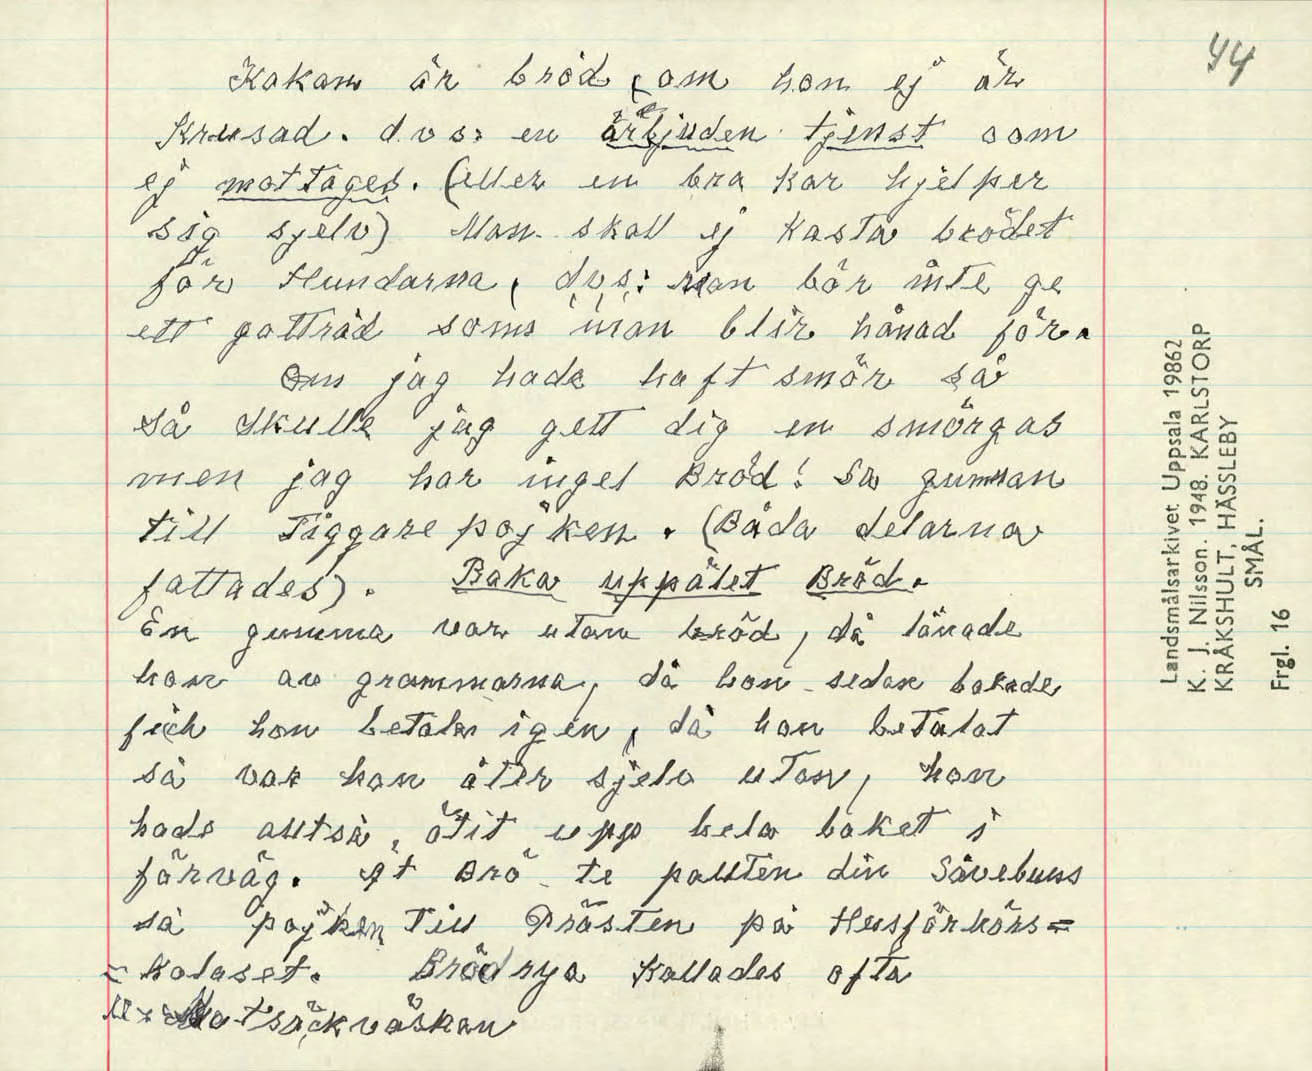 44
Kakan är bröd, om hon ej är
Krusad. d.v.s: en ärbjuden tjenst som
ej mottages. (eller en bra kar hjelper
sig sjelv) Man skall ej kasta brödet
för Hundarna, dvs: man bör inte ge
ett gottråd soms man blir hånad för.
Om jag hade haft smör så
så skulle jag gett dig en smörgas
men jag har inget Bröd! Sa gumman
till Tiggarepojken. (Båda delarna
fattades). Baka uppätet Bröd.
En gumma var utan bröd, då lånade
hon av grammarna, då hon sedan bakade
fick hon betala igen, då hon betalat
så var hon åter sjelv utan, hon
hade alltså, ätit upp hela baket i
förväg. Ät Brö te palten din Såvebuss
sa pojken Till Prästen på Husförhörs=
=kalaset. Brödrya kallades ofta
Matsäckväskan
Landsmålsarkivet Uppsala 19862
K. J. Nilsson. 1948. KARLSTORP
KRÅKSHULT, HÄSSLEBY
SMÅL.
Frgl. 16